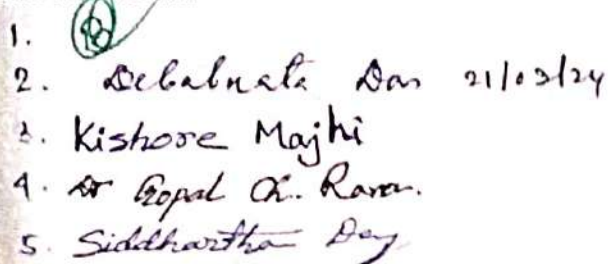 1.
2. Debabrata Das 21/03/24
3. Kishore Majhi
4. Dr Gopal Ch.
5. Siddhartha Dey